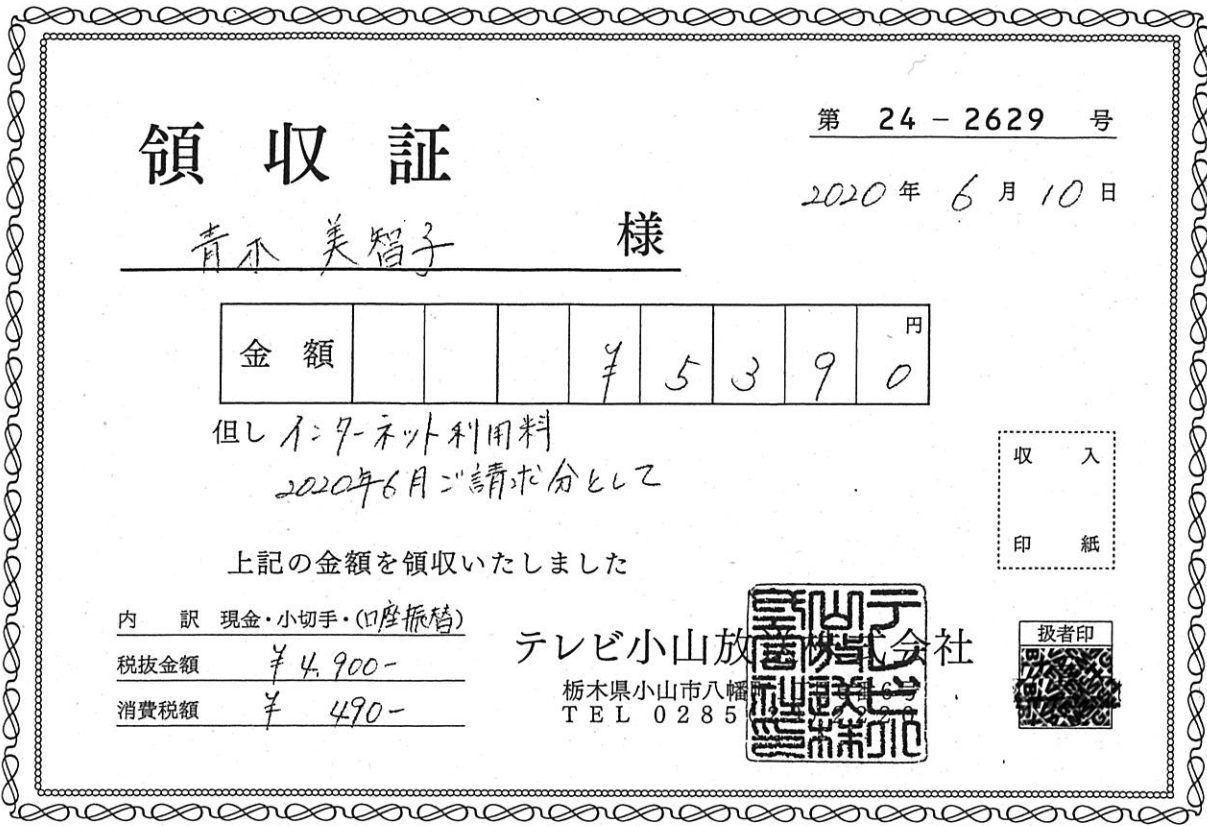 第 24－2629 号
領収証
2020年 6月 10日
青木 美智子 様
金額 ¥5390 円
但し インターネット利用料
2020年6月ご請求分として
収入
印紙
上記の金額を領収いたしました
内訳 現金・小切手・(口座振替)
税抜金額 ¥4,900-
消費税額 ¥490-
テレビ小山放送株式会社
栃木県小山市八幡
TEL 0285
扱者印